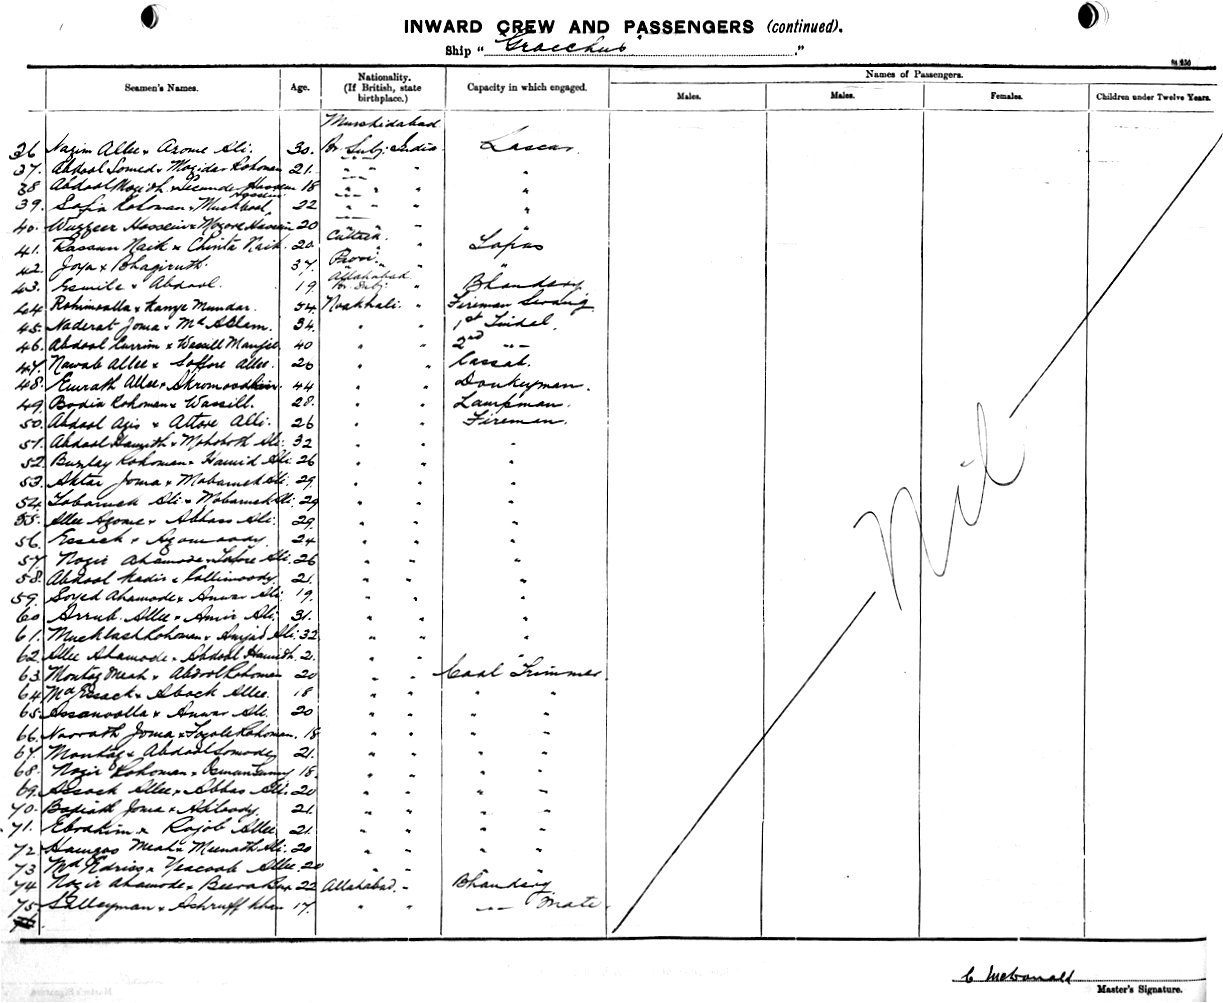 INWARD CREW AND PASSENGERS (continued).
Ship " Gracchus ."
Seamen's Names. Age. Nationality. (If British, state birthplace.) Capacity in which engaged. Names of Passengers.
Males. Males. Females. Children under Twelve Years.
Murshidabad
36 Nazim Allee x Azome Ali. 30. Br Subj. India Lascar.
37. Abdool Somed x Mozidar Rohoman 21. " " " "
38 Abdool Mozid x Hossein 18 " " " "
39. Rohoman x 22 " " " "
40. Wuzzeer Hossein x Hossein 20 " "
41. Naik x Chinta Naik. 20. Cuttack. " Topas
42. Joya x Bhagiruth. 37. " " "
43. Esmile x Abdool. 19 Allahabad Br. Subj. " Bhandary
44. Rohimoolla x Kanye Mundar. 54. Noakhali. " Fireman Serang
45. Naderat Joma x Md Aslam. 34. " " 1st Tindal.
46. Abdool Currim x Wassill 40 " " 2nd -"-
47. Nawab Allee x Goffore Allee. 26 " " Cassab.
48. Emrath Allee x 44 " " Donkeyman.
49. Bodia Rohoman x Wassill. 28. " " Lampman.
50. Abdool Azis x Attore Alli. 26 " " Fireman.
51. Abdool Hamith x Mohoboth Ali. 32 " " "
52. Rohoman x Hamid Ali. 26 " " "
53. Aktar Joma x Mobaruck Ali. 29 " " "
54. Tobaruck Ali x Mobaruck Ali. 29 " " "
55. Allee Azome x Abbass Ali. 29. " " "
56. Essack x 24 " " "
57. Nozir Ahamode x Ali. 26 " " "
58. Abdool Kadir x Collimoody. 21. " " "
59. Soyed Ahamode x Anwar Ali. 19. " " "
60 Allee x Amir Ali. 31. " " "
61. Rohoman x Amjad Ali. 32 " " "
62. Allee Ahamode x Abdool Hamith. 21. " " "
63. Montaz Meah x Abdool Rohoman 20 " " Coal Trimmer.
64 Md Essack x Allee. 18 " " " "
65. Assanoolla x Anwar Ali. 20 " " " "
66. Joma x Rohoman. 18 " " " "
67. Montaz x Abdool Somode 21. " " " "
68. Nozir Rohoman x 18. " " " "
69. Assock Allee x Abbas Ali. 20 " " " "
70. Joma x 21. " " " "
71. Ebrahim x Rojob Allee 21. " " " "
72. Meah x Ali. 20 " " " "
73. Md Edriss x Yeacoob Allee. 20 " " " "
74 Nozir Ahamode x 22 Allahabad. " Bhandary
75 Sulleyman x Ashruff Khan 17. " " -"- Mate.
76.
Nil
C McDonald
Master's Signature.